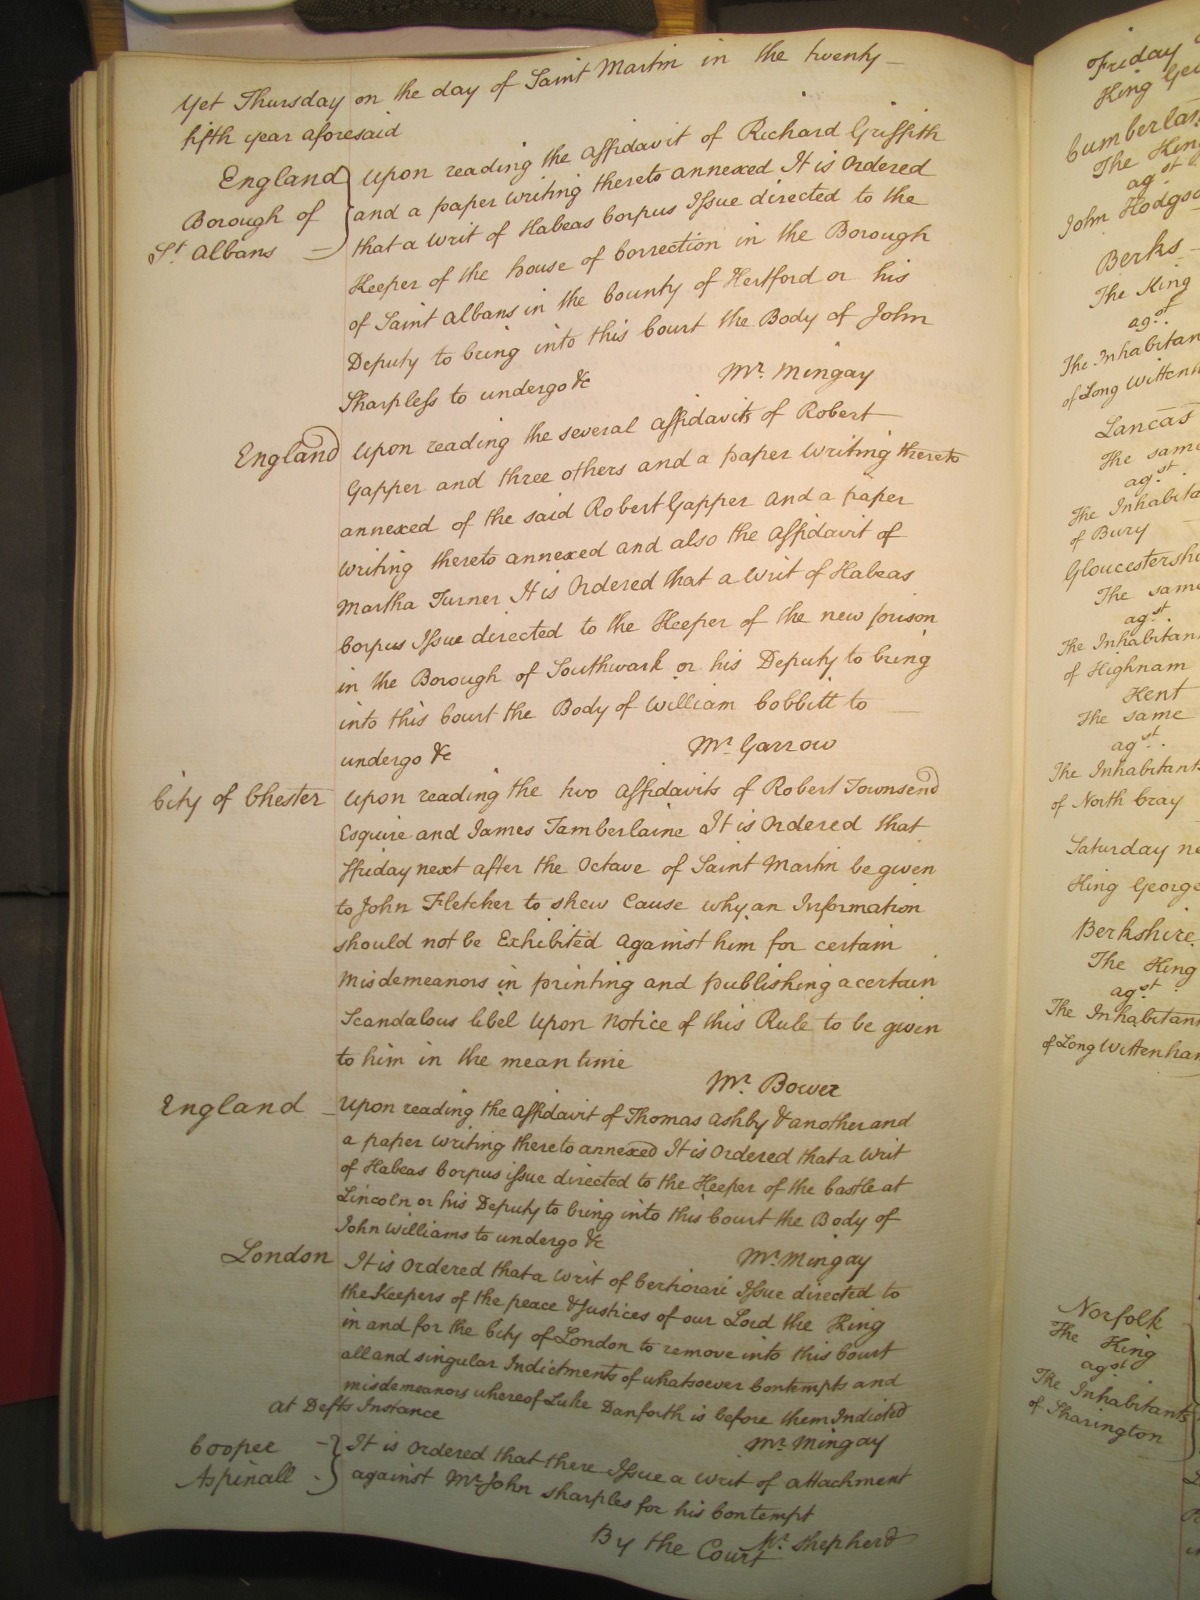 Yet Thursday on the day of Saint Martin in the twenty
fifth year aforesaid
England
Borough of
St. Albans
Upon reading the Affidavit of Richard Griffith
and a paper writing thereto annexed It is Ordered
that a Writ of Habeas Corpus Issue directed to the
Keeper of the house of Correction in the Borough
of Saint Albans in the County of Hertford or his
Deputy to bring into this Court the Body of John
Sharpless to undergo &c
Mr. Mingay
England
Upon reading the several Affidavits of Robert
Gapper and three others and a paper Writing thereto
annexed of the said Robert Gapper and a paper
writing thereto annexed and also the Affidavit of
Martha Turner It is Ordered that a Writ of Habeas
Corpus Issue directed to the Keeper of the new prison
in the Borough of Southwark or his Deputy to bring
into this Court the Body of William Cobbitt to
undergo &c
Mr. Garrow
City of Chester
Upon reading the two Affidavits of Robert Townsend
Esquire and James Tamberlaine It is Ordered that
Friday next after the Octave of Saint Martin be given
to John Fletcher to shew Cause why an Information
should not be Exhibited against him for certain
misdemeanors in printing and publishing a certain
Scandalous libel Upon Notice of this Rule to be given
to him in the mean time
Mr. Bower
England
Upon reading the Affidavit of Thomas Ashby & another and
a paper writing thereto annexed It is Ordered that a Writ
of Habeas Corpus issue directed to the Keeper of the Castle at
Lincoln or his Deputy to bring into this Court the Body of
John Williams to undergo &c
Mr. Mingay
London
It is Ordered that a Writ of Certiorari Issue directed to
the Keepers of the peace & Justices of our Lord the King
in and for the City of London to remove into this Court
all and singular Indictments of whatsoever Contempts and
misdemeanors whereof Luke Danforth is before them Indicted
at Defts Instance
Mr. Mingay
Cooper
Aspinall
It is Ordered that there Issue a Writ of attachment
against Mr. John Sharples for his Contempt
Mr. Shepherd
By the Court
Friday
King
The
agst.
John
Berks
The King
agst.
The
of Long
Lancas
The same
agst.
The
of Bury
The same
agst.
The
of Highnam
Kent
The same
agst.
The
of North Cray
Saturday
King George
Berkshire
The King
agst.
The
of Long
Norfolk
The King
agst.
The Inhabitants
of Sharington